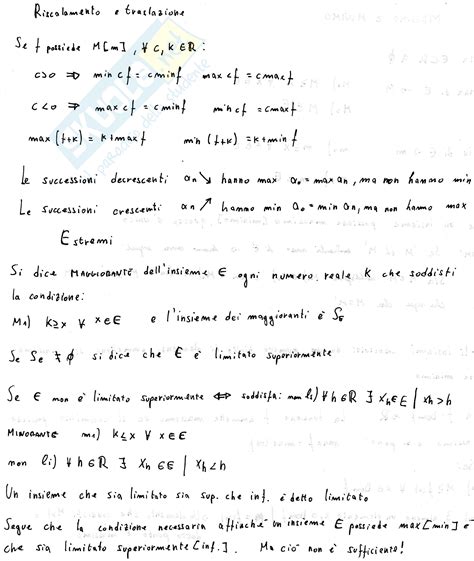 Riscalamento e traslazione
Se f possiede M[m], ∀ c, k ∈ ℝ :
c>0 ⇒ min cf = c min f   max cf = c max f
c<0 ⇒ max cf = c min f   min cf = c max f
max (f+k) = k + max f   min (f+k) = k + min f
Le successioni decrescenti an ↘ hanno max a₀ = max an, ma non hanno min
Le successioni crescenti an ↗ hanno min a₀ = min an, ma non hanno max
Estremi
Si dice MAGGIORANTE dell'insieme E ogni numero reale K che soddisfi
la condizione:
M₁) K ≥ x ∀ x ∈ E   e l'insieme dei maggioranti è S_E
Se S_E ≠ ∅ si dice che E è limitato superiormente
Se E non è limitato superiormente ⇔ soddisfa: non ls) ∀ h ∈ ℝ ∃ x_h ∈ E | x_h > h
MINORANTE m₁) k ≤ x ∀ x ∈ E
non li) ∀ h ∈ ℝ ∃ x_h ∈ E | x_h < h
Un insieme che sia limitato sia sup. che inf. è detto limitato
Segue che la condizione necessaria affinché un insieme E possiede max [min] è
che sia limitato superiormente [inf.]. Ma ciò non è sufficiente!